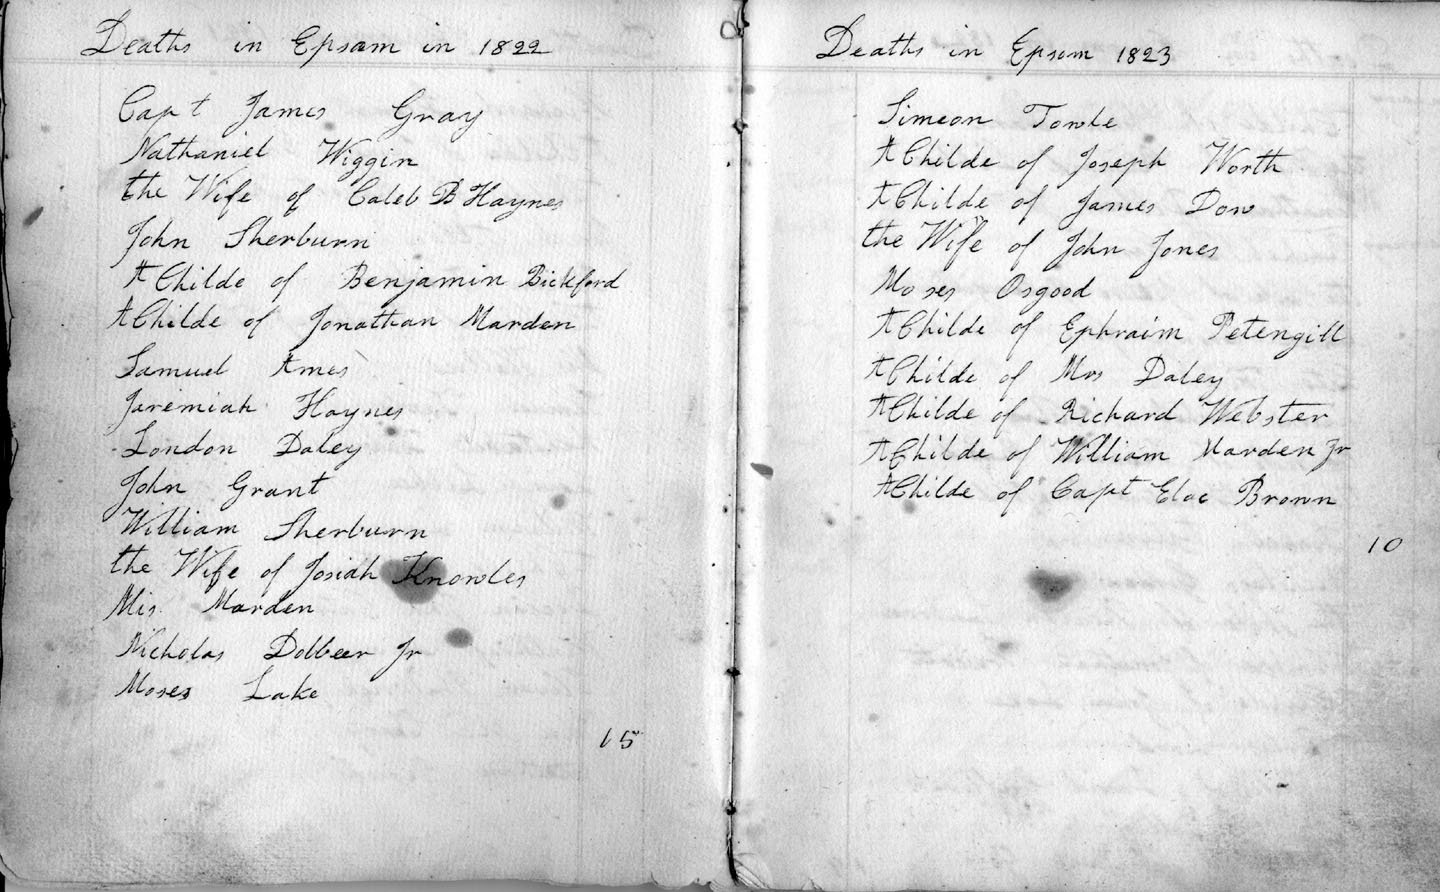 Deaths in Epsom in 1822
Capt James Gray
Nathaniel Wiggin
the Wife of Caleb B Haynes
John Sherburn
A Childe of Benjamin Bickford
A Childe of Jonathan Marden
Samuel Ames
Jeremiah Haynes
London Daley
John Grant
William Sherburn
the Wife of Josiah Knowles
Marden
Nicholas Dolbeer Jr
Moses Lake
15
Deaths in Epsom 1823
Simeon Towle
A Childe of Joseph Worth
A Childe of James Dow
the Wife of John Jones
Moses Osgood
A Childe of Ephraim Petengill
A Childe of Mrs Daley
A Childe of Richard Webster
A Childe of William Marden Jr
A Childe of Capt Brown
10